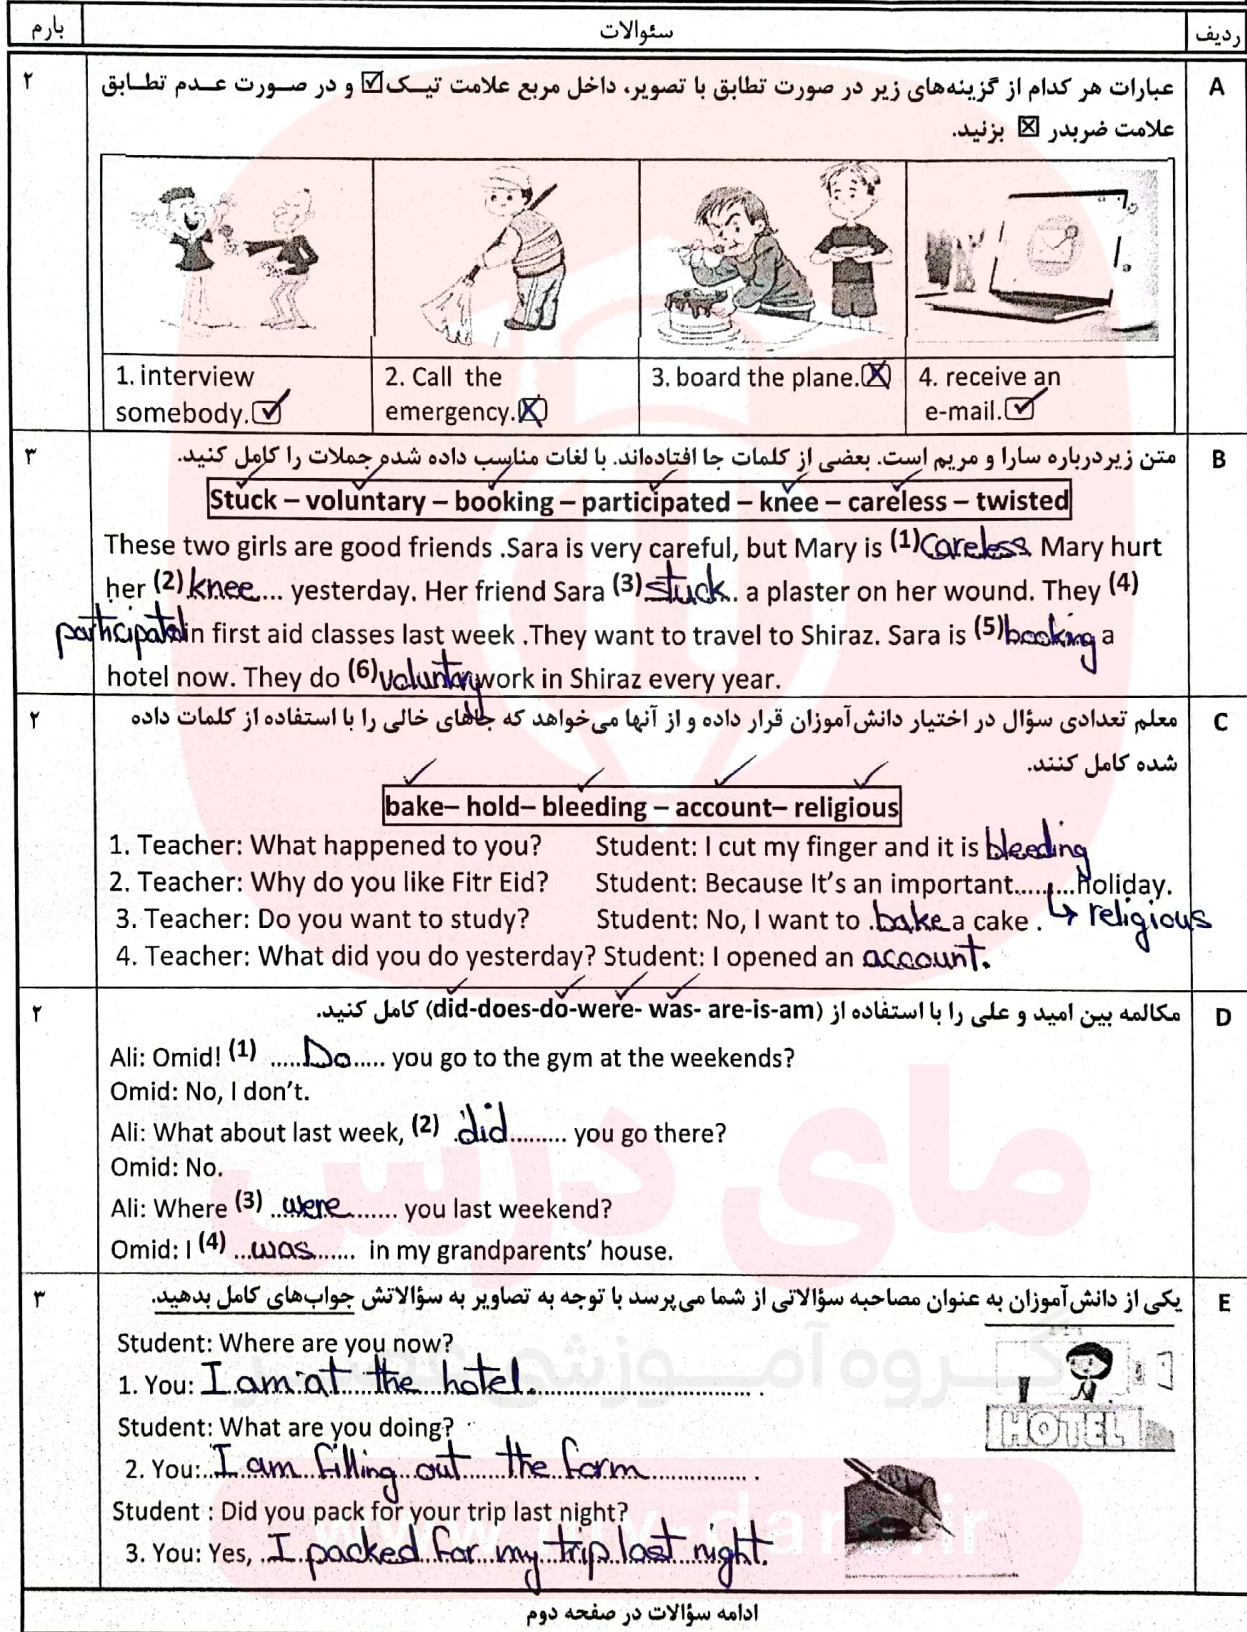 ردیف سئوالات بارم
A عبارات هر کدام از گزینه‌های زیر در صورت تطابق با تصویر، داخل مربع علامت تیک☑ و در صورت عدم تطابق ۲
علامت ضربدر ☒ بزنید.
1. interview somebody. ☑
2. Call the emergency. ☒
3. board the plane. ☒
4. receive an e-mail. ☑
B متن زیر درباره سارا و مریم است. بعضی از کلمات جا افتاده‌اند. با لغات مناسب داده شده جملات را کامل کنید. ۳
Stuck – voluntary – booking – participated – knee – careless – twisted
These two girls are good friends .Sara is very careful, but Mary is (1) Careless. Mary hurt
her (2) knee... yesterday. Her friend Sara (3) stuck. a plaster on her wound. They (4)
participated in first aid classes last week .They want to travel to Shiraz. Sara is (5) booking a
hotel now. They do (6) voluntary work in Shiraz every year.
C معلم تعدادی سؤال در اختیار دانش‌آموزان قرار داده و از آنها می‌خواهد که جاهای خالی را با استفاده از کلمات داده ۲
شده کامل کنند.
bake– hold– bleeding – account– religious
1. Teacher: What happened to you? Student: I cut my finger and it is bleeding
2. Teacher: Why do you like Fitr Eid? Student: Because It's an important.........Holiday.
3. Teacher: Do you want to study? Student: No, I want to .bake a cake . ↳ religious
4. Teacher: What did you do yesterday? Student: I opened an account.
D مکالمه بین امید و علی را با استفاده از (did-does-do-were- was- are-is-am) کامل کنید. ۲
Ali: Omid! (1) .....Do..... you go to the gym at the weekends?
Omid: No, I don't.
Ali: What about last week, (2) .did......... you go there?
Omid: No.
Ali: Where (3) ..were....... you last weekend?
Omid: I (4) ...was....... in my grandparents' house.
E یکی از دانش‌آموزان به عنوان مصاحبه سؤالاتی از شما می‌پرسد با توجه به تصاویر به سؤالاتش جواب‌های کامل بدهید. ۳
Student: Where are you now?
HOTEL
1. You: I am at the hotel.
Student: What are you doing?
2. You: I am filling out the form
Student : Did you pack for your trip last night?
3. You: Yes, I packed for my trip last night.
ادامه سؤالات در صفحه دوم
مای درس
گروه آموزشی عصر
www.my-dars.ir